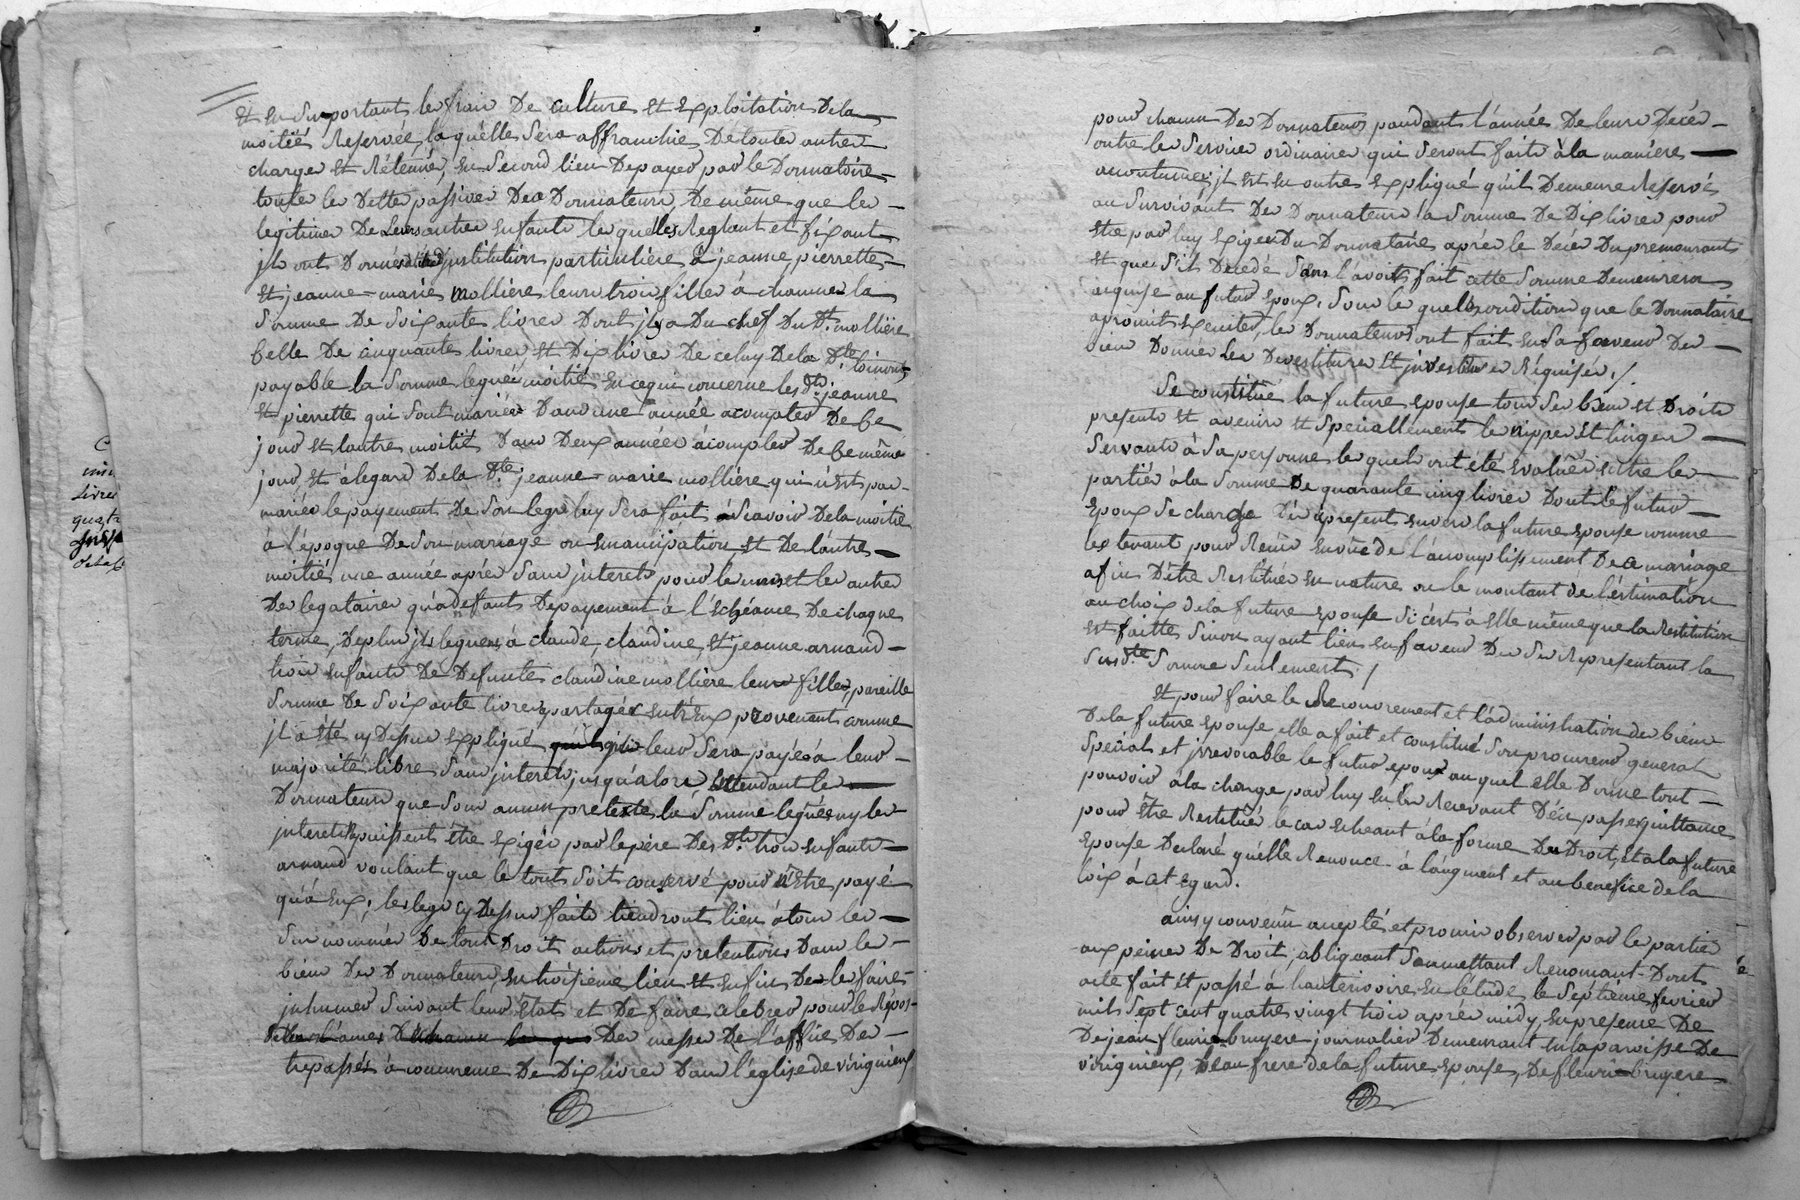 et en suportant les frais de culture et exploitation de la
moitiée Reservée, laquélle sera affranchie de toutes autres
charges et Rétenüe, en second lieu de payer par le Donnataire
toutes les dettes passives des Donnateurs, de même que les
legitimes de Leurs autres enfants lesquéles Reglant et fixant
jls ont donnés d'institution particulière à jeanne, pierrette
et jeanne-marie mollière leurs trois filles à chacune la
somme de soixante livres dont jl y a du chef du dt. mollière
celle de cinquante livres et dix livres de celuy de la dte.
payable la somme leguée moitié en ce qui concerne les dtes. jeanne
et pierrette qui sont mariées dans une année a compter de ce
jour et l'autre moitié dans deux années à compter de ce même
jour, et à legard de la dte. jeanne-marie mollière qui n'est pas
mariée le payement de son legs luy sera fait à scavoir de la moitié
à l'époque de son mariage ou emancipation et de l'autre
moitié une année après sans jnterets pour les unes et les autres
des legataires qu'a defaut de payement à l'échéance de chaque
terme, de plus jls leguent à claude, claudine, et jeanne arnaud
trois enfants de defunte claudine mollière leur fille, pareille
somme de soixante livres partagée entr'eux provenant comme
jl a été cy dessus expliqué qui leur sera payée à leur
majorité libre sans jnterets jusqu'alors, entendant les
Donnateurs que sous aucun pretexte la somme leguée ny les
jnterets puissent être exigés par le père des dts. trois enfants
arnaud voulant que le tout soit conservé pour n'être payé
qu'à eux; les legs cy dessus faits tiendront lieu à tous les
sus nommés de tous droits actions et pretentions dans les
biens des Donnateurs, en troisième lieu et enfin de les faire
jnhumer suivant leur état et de faire celebrer pour le Répos
de leurs âmes des messes de l'office des
trepassés à concurrence de dix livres dans l'eglise de virigneux
pour chacun des Donnateurs pendant l'année de leurs décés
outre les services ordinaires qui seront faits à la manière
accoutumée; jl est en outre expliqué qu'il demeure Reservé
au survivant des Donnateurs la somme de dix livres pour
être par luy exigée du Donnataire après le décés du premourant
et que s'il décede sans l'avoir fait cette somme demeurera
acquise au futur epoux, sous lesquelles conditions que le Donnataire
a promit executer, les Donnateurs ont fait en sa faveur des
biens donnés les devestitures et jnvestitures Réquises./
Se constitüe la future epouse tous ses biens et droits
presents et avenirs et speciallement les nippes et linges
servants à sa personne lesquels ont été evalués entre les
parties à la somme de quarante cinq livres dont le futur
Epoux se charge dès àpresent envers la future epouse comme
les tenant pour Reçus en vüe de l'accomplissement de ce mariage
afin d'être Restitués en nature ou le montant de l'éstimation
au choix de la future epouse si c'est à elle même que la Restitution
est faitte sinon ayant lieu en faveur de ses Representants la
susdte. somme seulement./
Et pour faire le Recouvrement et l'administration des biens
de la future epouse, elle a fait et constitué son procureur general
special et jrrevocable le futur epoux auquel elle donne tout
pouvoir à la charge par luy en les Recevant d'en passer quittance
pour être Restitués le cas echeant à la forme du droit, et a la future
epouse declaré qu'élle Renonce à l'augment et au benefice de la
loix à cet egard.
ainsy convenü accepté et promis observer par les parties
aux peines de droit, obligeant soumettant Renonçant dont
acte fait et passé à hauterivoire en l'étude le séptième fevrier
mil sept cent quatre vingt trois après midy, en presence de
de jean fleuri bruyere journalier demeurant en la paroisse de
virigneux, beau frere de la future epouse, de fleuri bruyere